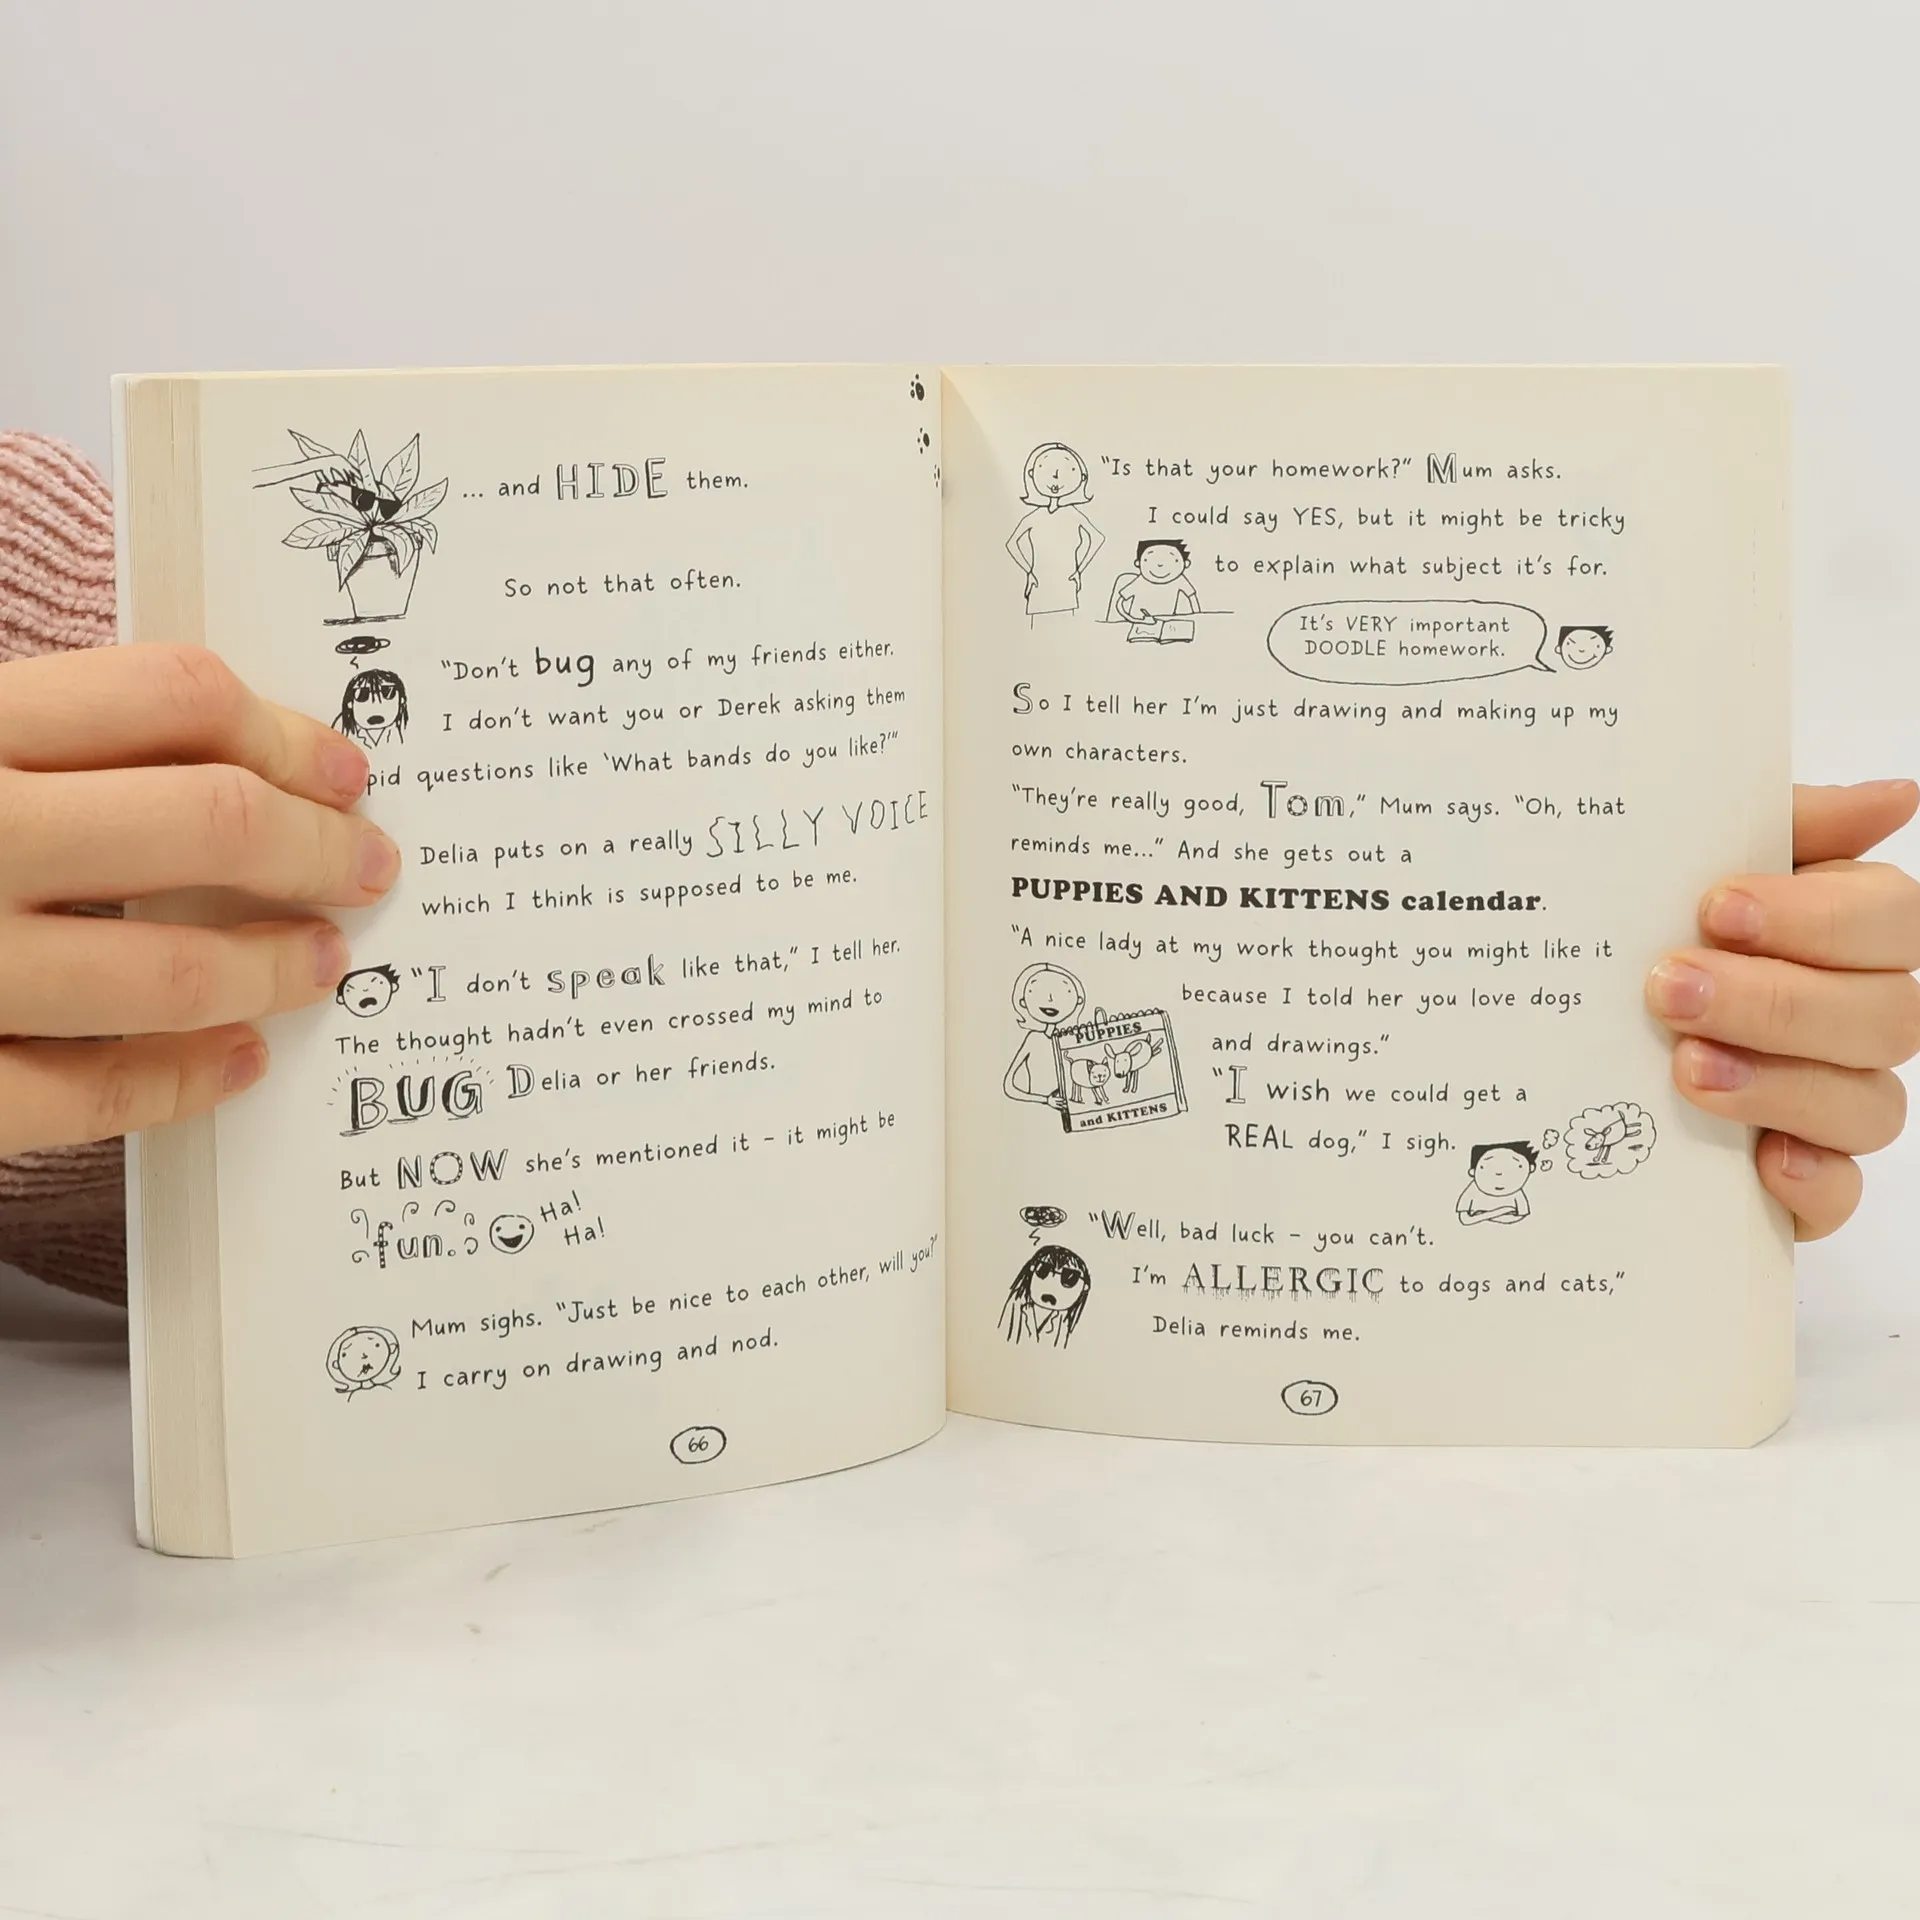 ... and HIDE them.
So not that often.
"Don't bug any of my friends either.
I don't want you or Derek asking them
questions like 'What bands do you like?'"
Delia puts on a really SILLY VOICE
which I think is supposed to be me.
"I don't speak like that," I tell her.
The thought hadn't even crossed my mind to
BUG Delia or her friends.
But NOW she's mentioned it – it might be
fun. Ha!
Ha!
Mum sighs. "Just be nice to each other, will you?"
I carry on drawing and nod.
66
"Is that your homework?" Mum asks.
I could say YES, but it might be tricky
to explain what subject it's for.
It's VERY important
DOODLE homework.
So I tell her I'm just drawing and making up my
own characters.
"They're really good, Tom," Mum says. "Oh, that
reminds me..." And she gets out a
PUPPIES AND KITTENS calendar.
"A nice lady at my work thought you might like it
because I told her you love dogs
and drawings."
PUPPIES
and KITTENS
"I wish we could get a
REAL dog," I sigh.
"Well, bad luck – you can't.
I'm ALLERGIC to dogs and cats,"
Delia reminds me.
67